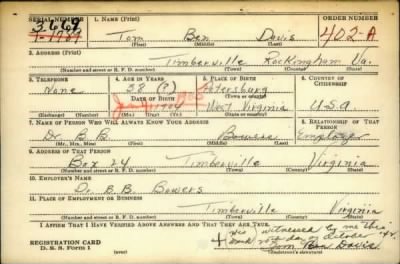 SERIAL NUMBER
1. NAME (Print)
ORDER NUMBER
T-1787
Tom Ben Davis
402-A
(First) (Middle) (Last)
2. ADDRESS (Print)
Timberville Rockingham Va.
(Number and street or R. F. D. number) (Town) (County) (State)
3. TELEPHONE
4. AGE IN YEARS
5. PLACE OF BIRTH
6. COUNTRY OF CITIZENSHIP
None
38 (?)
Petersburg
DATE OF BIRTH
West Virginia
U.S.A
(Exchange) (Number)
(Mo.) (Day) (Yr.)
(Town or county)
(State or country)
7. NAME OF PERSON WHO WILL ALWAYS KNOW YOUR ADDRESS
8. RELATIONSHIP OF THAT PERSON
Dr. B.B. Bowers Employer
(Mr., Mrs., Miss) (First) (Middle) (Last)
9. ADDRESS OF THAT PERSON
Box 24 Timberville Virginia
(Number and street or R. F. D. number) (Town) (County) (State)
10. EMPLOYER'S NAME
Dr. B.B. Bowers
11. PLACE OF EMPLOYMENT OR BUSINESS
Timberville Virginia
(Number and street or R. F. D. number) (Town) (County) (State)
I AFFIRM THAT I HAVE VERIFIED ABOVE ANSWERS AND THAT THEY ARE TRUE.
his witnessed by me this
mark day of October
REGISTRATION CARD
D. S. S. Form 1
Tom Ben Davis
(Registrant's signature)